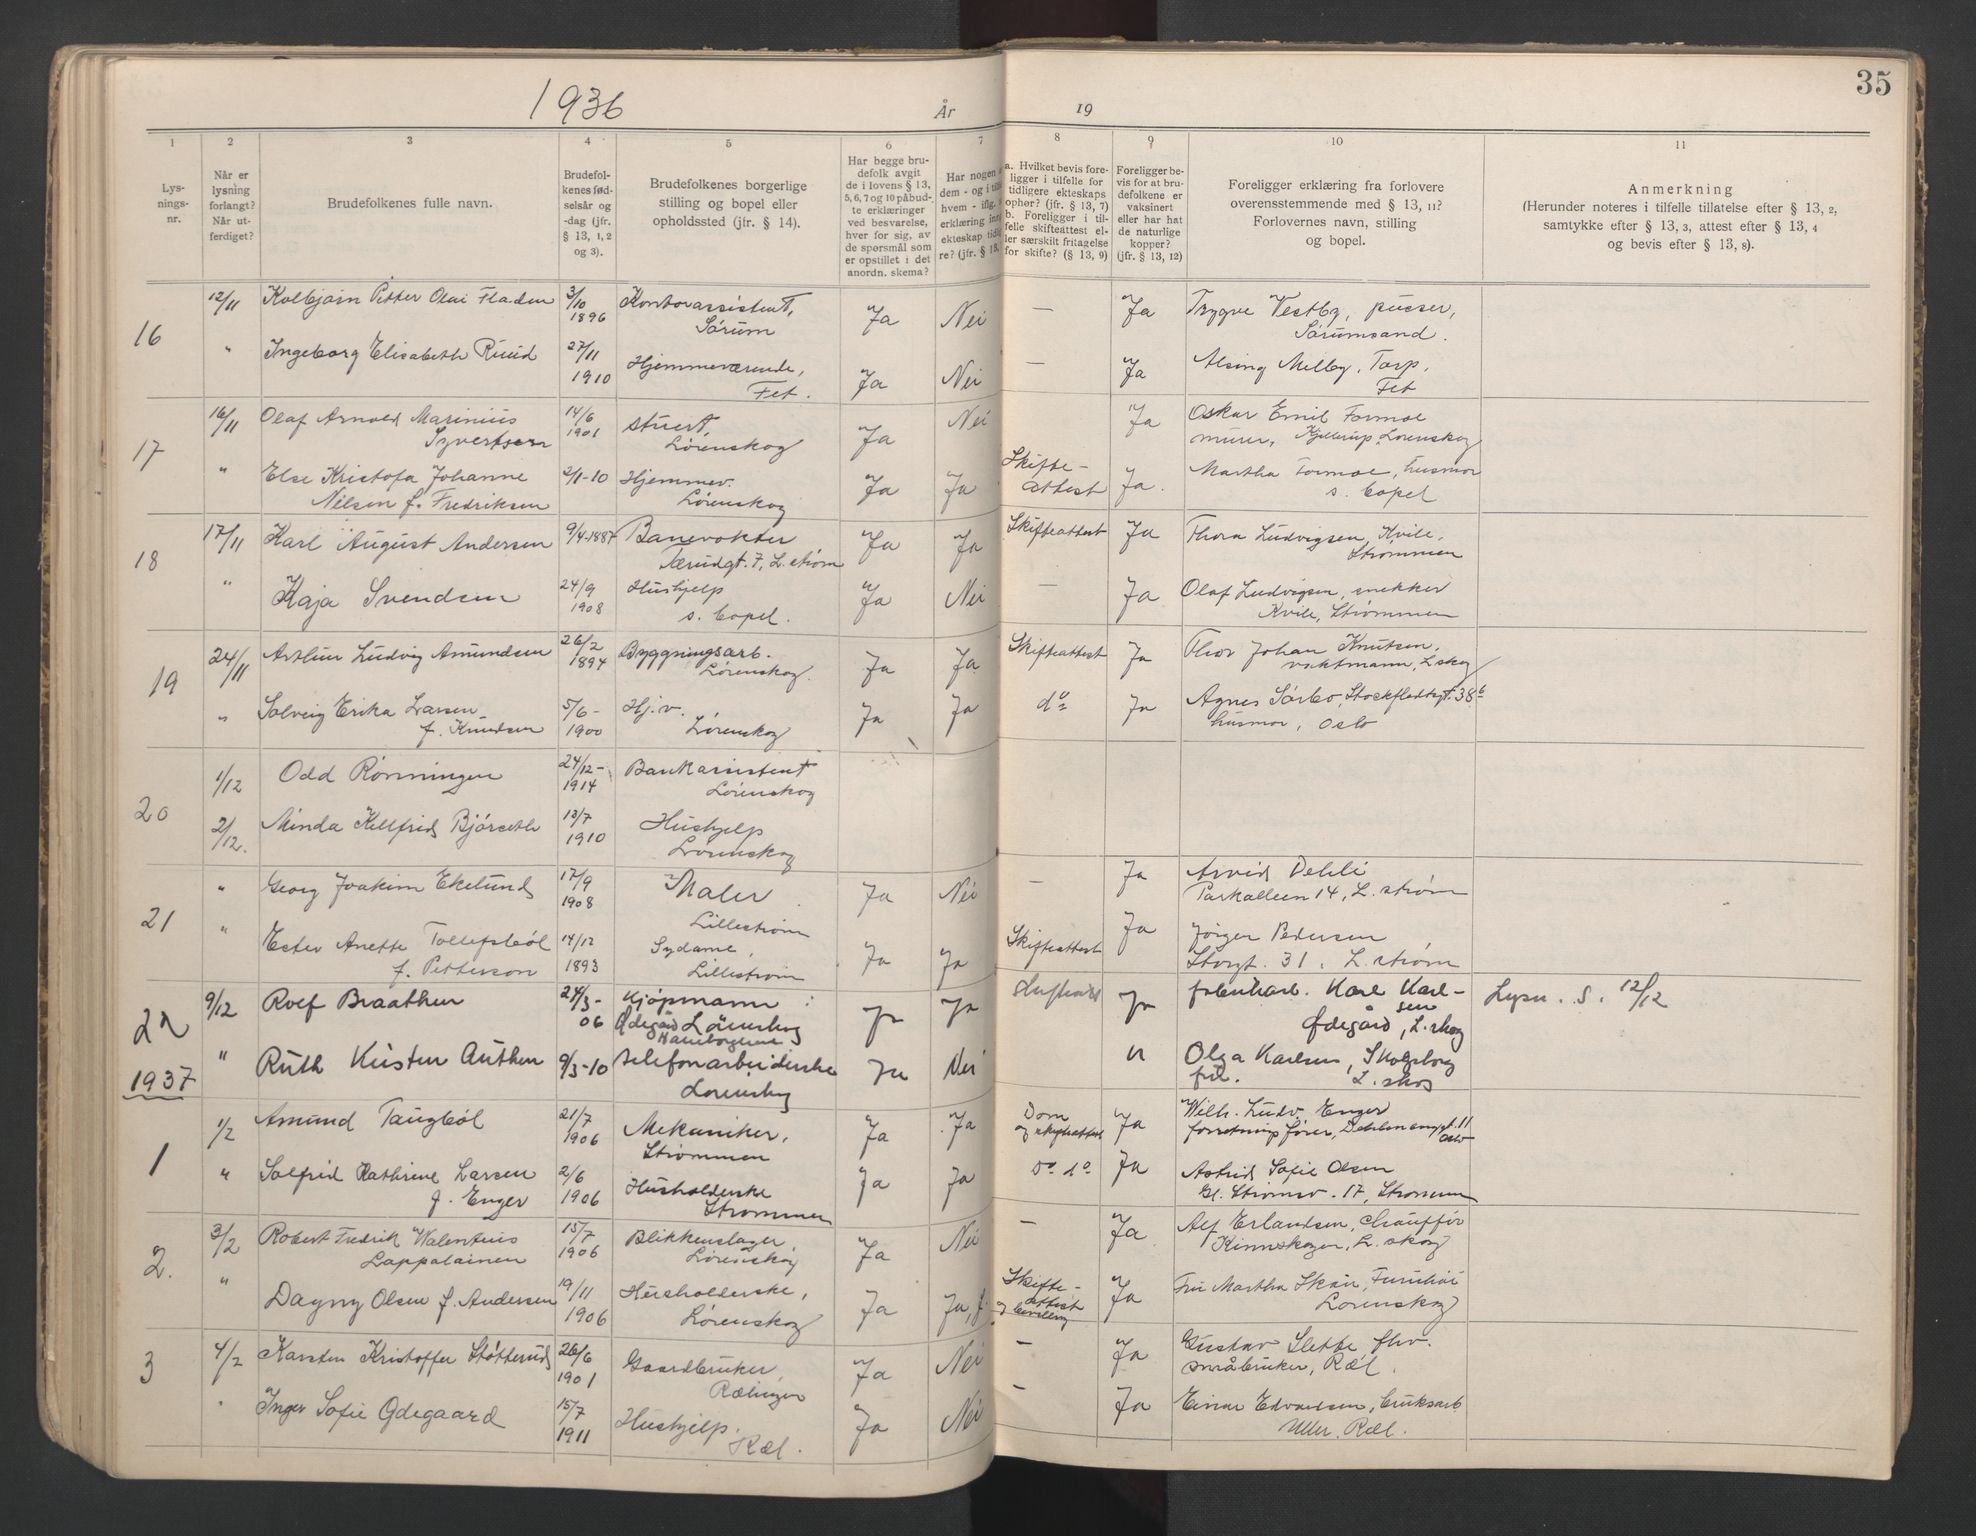 35
1936
År
19
1
2
3
4
5
6
7
8
9
10
11
Lys-
nings-
nr.
Når er
lysning
forlangt?
Når ut-
ferdiget?
Brudefolkenes fulle navn.
Brudefol-
kenes fød-
selsår og
-dag (jfr.
§ 13, 1, 2
og 3).
Brudefolkenes borgerlige
stilling og bopel eller
opholdssted (jfr. § 14).
Har begge bru-
defolk avgit
de i lovens § 13,
5, 6, 7 og 10 påbud-
te erklæringer
ved besvarelse,
hver for sig, av
de spørsmål som
er opstillet i det
anordn. skema?
Har nogen
dem - og i
hvem - iflg.
erklæring
ekteskap
re? (jfr. § 13,
a. Hvilket bevis fore-
ligger i tilfelle for
tidligere ekteskaps
ophør? (jfr. § 13, 7)
b. Foreligger i til-
felle skifteattest el-
ler særskilt fritagelse
for skifte? (§ 13, 9)
Foreligger be-
vis for at bru-
defolkene er
vaksinert
eller har hat
de naturlige
kopper?
(jfr. § 13, 12)
Foreligger erklæring fra forlovere
overensstemmende med § 13, 11?
Forlovernes navn, stilling
og bopel.
Anmerkning
(Herunder noteres i tilfelle tillatelse efter § 13, 2,
samtykke efter § 13, 3, attest efter § 13, 4
og bevis efter § 13, 8).
16 12/11 Kolbjørn Petter Olai Fladen 3/10 1896 Kontorassistent, Sørum Ja Nei — Ja Trygve Vestby, pusser, Sørumsand.
" Ingeborg Elisabeth Ruud 27/11 1910 Hjemmeværende, Fet. Ja Nei — Ja Alsing Melby, Tarp, Fet
17 16/11 Olaf Arnold Marinius Syvertsen 14/6 1901 stuert, Lørenskog Ja Nei Ja Oskar Emil Formoe murer, Kjellerup, Lørenskog
" Else Kristofa Johanne Nilsen f. Fredriksen 2/1-10 Hjemmev. Lørenskog Ja Ja Skifte-attest Ja. Martha Formoe, husmor s. bopel
18 17/11 Karl August Andersen 9/4-1887 Banevokter Tærudgt. 7, L.strøm Ja Ja Skifteattest Ja Thora Ludvigsen, Kvile, Strømmen
" Kaja Svendsen 24/9 1908 Hushjelp s. bopel. Ja Nei — Ja Olaf Ludvigsen, snekker Kvile, Strømmen
19 24/11 Arthur Ludvig Amundsen 26/2 1894 Byggningsarb. Lørenskog. Ja Ja Skifteattest Ja Thor Johan Knutsen, vaktmann, L.skog
" Solveig Erika Larsen f. Knudsen 5/6-1900 Hj.v. Lørenskog Ja Ja do Ja Agnes Sørbo, Stockfledtsgt. 38b husmor, Oslo
20 1/12 Odd Rønningen 24/12-1914 Bankassistent Lørenskog
2/12. Minda Kellfrid Bjørseth 13/7 1910 Hushjelp Lørenskog
21 " Georg Joakim Ekelund 17/9 1908 Maler Lillestrøm Ja Nei — Ja Arvid Dehli Parkalleen 14, L.strøm
" Ester Anette Tollefsbøl f. Petterson 14/12 1893 Sydame, Lillestrøm Ja Ja Skifteattest Ja Jørgen Pedersen Storgt. 31, L.strøm
22 9/12 Rolf Braathen 24/3-06 Kjøpmann Ødegård Lørenskog Ja Ja Ja Karl Karlsen Ødegård, L.skog Lysn. s. 12/12
" Ruth Kirsten Authen 9/3-10 telefonarbeiderske Lørenskog Ja Nei " Olga Karlsen, Skolsborg frk. L.skog
1937
1 1/2 Amund Taugbøl 21/7 1906 Mekaniker, Strømmen Ja Ja Dom og skifteattest Ja Wilh. Ludv. Enger forretningsfører, 11 Oslo
" Solfrid Kathrine Larsen f. Enger 2/6 1906 Husholderske Strømmen Ja Ja do do Ja Astrid Sofie Olsen Gl. Strømsv. 17, Strømmen
2. 3/2 Robert Fredrik Walentius Lappalainen 15/7 1906 Blikkenslager Lørenskog Ja Nei — Ja Alf Erlandsen, chauffør Kinnskogen, L.skog
" Dagny Olsen f. Andersen 19/11 1906 Husholderske, Lørenskog Ja Ja, Skifte-attest og bevilling Ja Fru Martha Skau, Furuhøi Lørenskog
3 4/2 Karsten Kristoffer Støtterud 26/6 1901 Gaardbruker, Rælingen Ja Nei — Ja Gustav Slette, fhv. småbruker, Ræl.
" Inger Sofie Ødegaard 15/7 1911 Hushjelp. Ræl. Ja Nei — Ja Einar Edvardsen, bruksarb Uller, Ræl.